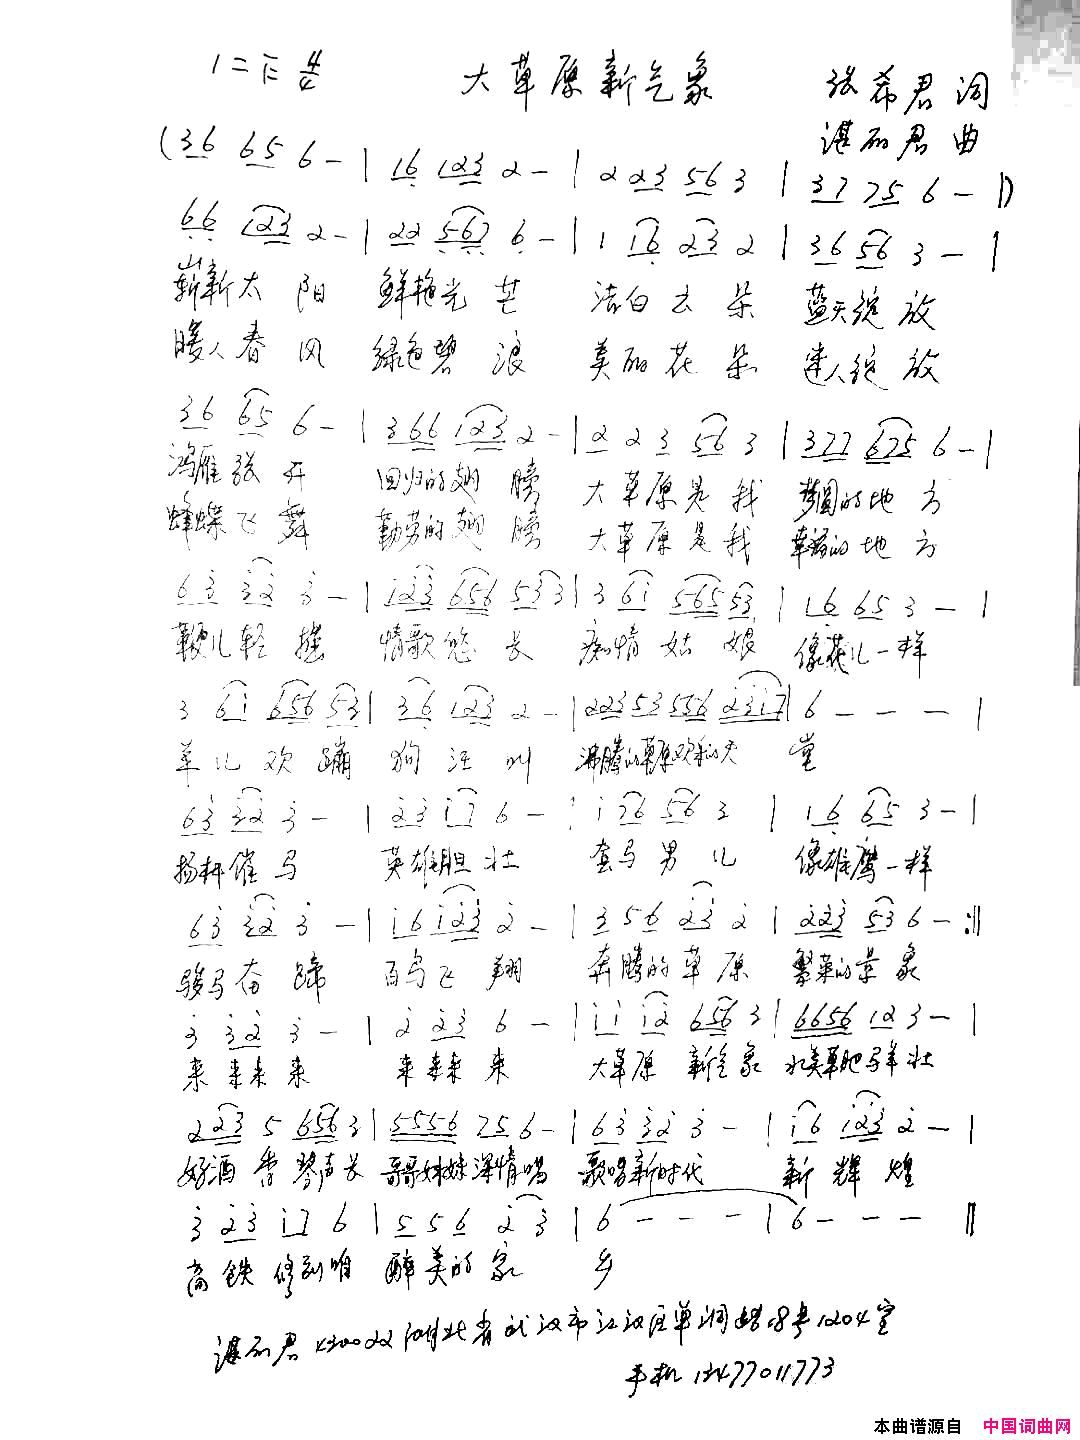 1=♭E 4/4 大草原新气象 张希君 词
湛丽君 曲
(36 65 6 - | 16 123 2 - | 2 23 56 3 | 37 75 6 - |)
66 123 2 - | 22 567 6 - | 1 16 23 2 | 36 56 3 - |
崭新太阳 鲜艳光芒 洁白云朵 蓝天绽放
暖人春风 绿色碧浪 美丽花朵 迷人绽放
36 65 6 - | 366 123 2 - | 2 2 3 56 3 | 377 675 6 - |
鸿雁张开 回归的翅膀 大草原是我 梦圆的地方
蜂蝶飞舞 勤劳的翅膀 大草原是我 幸福的地方
63 32 3 - | 123 656 533 | 3 61 56553 | 16 65 3 - |
鞭儿轻摇 情歌悠长 痴情姑娘 像花儿一样
3 61 656 53 | 36 123 2 - | 223 53 556 2317 | 6 - - - |
羊儿欢蹦 狗汪叫 沸腾的草原欢乐的天堂
63 32 3 - | 23 17 6 - | 176 56 3 | 16 65 3 - |
扬杆催马 英雄胆壮 套马男儿 像雄鹰一样
63 32 3 - | 16 123 2 - | 3 5 6 23 2 | 223 53 6 - :||
骏马奋蹄 百鸟飞翔 奔腾的草原 繁荣的景象
3 32 3 - | 2 23 6 - | 11 12 656 3 | 6656 12 3 - |
来来来来 来来来来 大草原 新气象 水美草肥马羊壮
223 5 656 3 | 5556 725 6 - | 63 32 3 - | 16 123 2 - |
好酒香琴声长 哥哥妹妹深情唱 歌唱新时代 新辉煌
3 23 17 6 | 5 5 6 2 3 | 6 - - - | 6 - - - ||
高铁修到咱 醉美的家乡
湛丽君 430022 湖北省武汉市江汉区单洞路 号1204室
手机 13477011773
本曲谱源自 中国词曲网